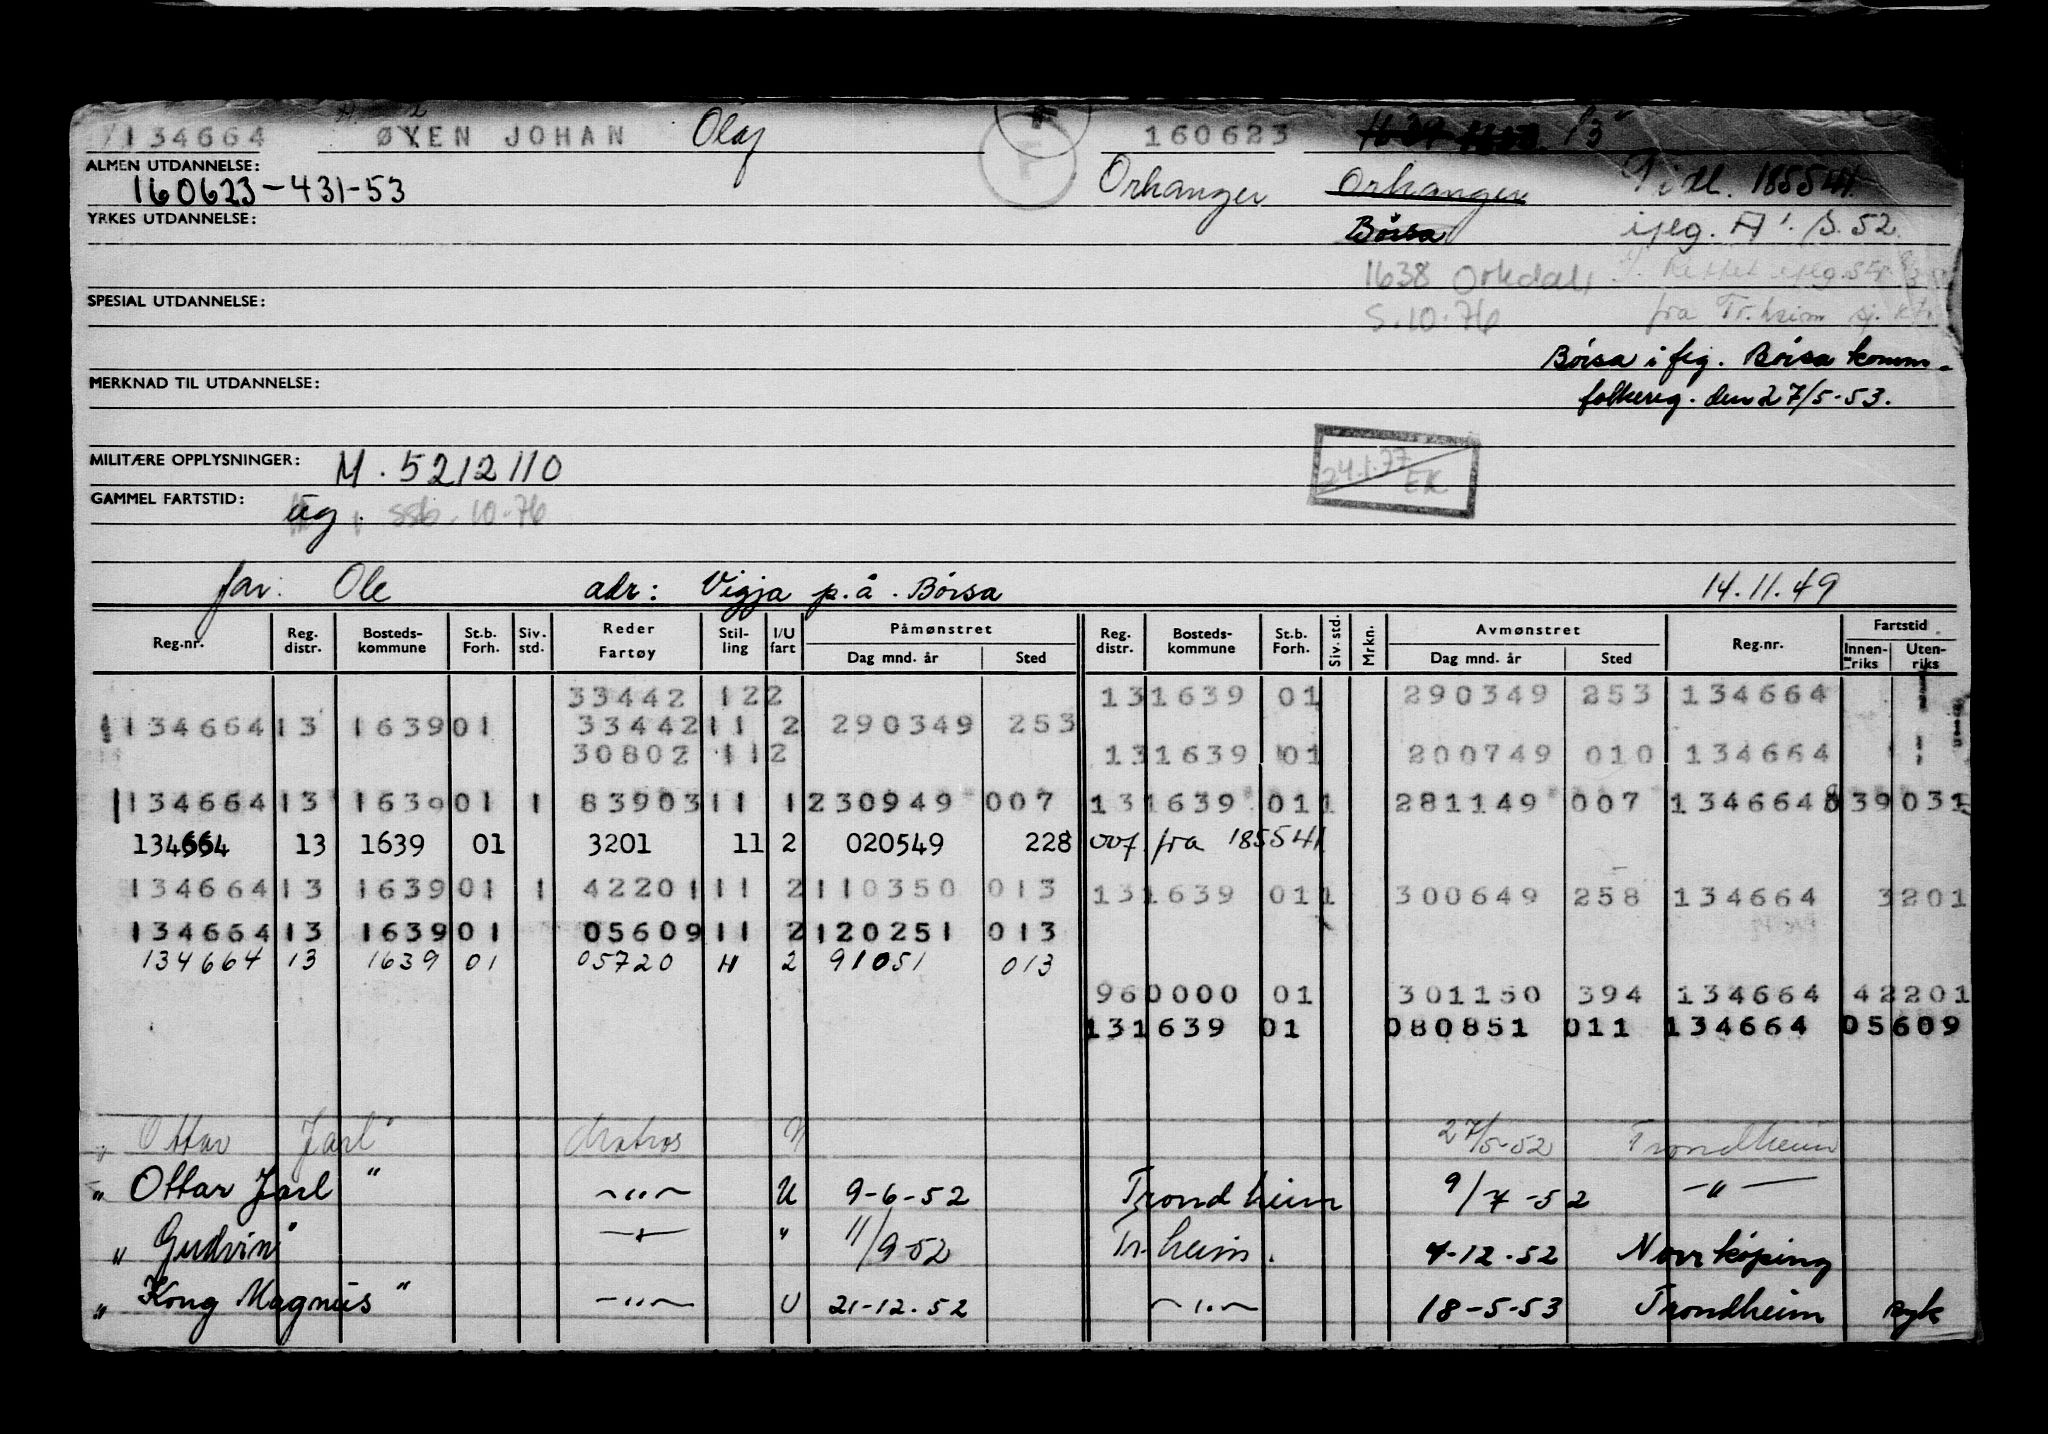 134664 ØYEN JOHAN Olaf 160623
ALMEN UTDANNELSE: 160623-431-53 Orkanger Orkanger Tidl. 185541.
YRKES UTDANNELSE: Börsa
1638 Orkdal
SPESIAL UTDANNELSE: 5.10.76 fra Tr.heim sj. kt.
Börsa i flg. Börsa komm.
MERKNAD TIL UTDANNELSE: folkereg. den 27/5-53.
MILITÆRE OPPLYSNINGER: M. 5212110 24.1.77 EK
GAMMEL FARTSTID: ug. ssb. 10-76
far: Ole adr: Vigja p.å. Börsa 14.11.49
Reg.nr. Reg. distr. Bosteds- kommune St.b. Forh. Siv. std. Reder Fartøy Stil- ling I/U fart Påmønstret Dag mnd. år Sted Reg. distr. Bosteds- kommune St.b. Forh. Siv. std. Mrkn. Avmønstret Dag mnd. år Sted Reg.nr. Fartstid Innen- riks Uten- riks
33442 122 131639 01 290349 253 134664
134664 13 1639 01 33442 11 2 290349 253
30802 112 131639 01 200749 010 134664
134664 13 1639 01 1 83903 11 1 230949 007 131639 01 1 281149 007 134664 839031
134664 13 1639 01 3201 11 2 020549 228 ovf. fra 185541
134664 13 1639 01 1 42201 11 2 110350 013 131639 01 1 300649 258 134664 3201
134664 13 1639 01 05609 11 2 120251 013
134664 13 1639 01 05720 11 2 91051 013
960000 01 301150 394 134664 42201
131639 01 080851 011 134664 05609
" Ottar Jarl" Matros U 27/5-52 Trondheim
" Ottar Jarl " -"- U 9-6-52 Trondheim 9/7-52 -"-
" Gudvin" -"- " 11/9-52 Tr.heim. 4-12-52 Norrköping
" Kong Magnus " -"- U 21-12-52 -"- 18-5-53 Trondheim syk